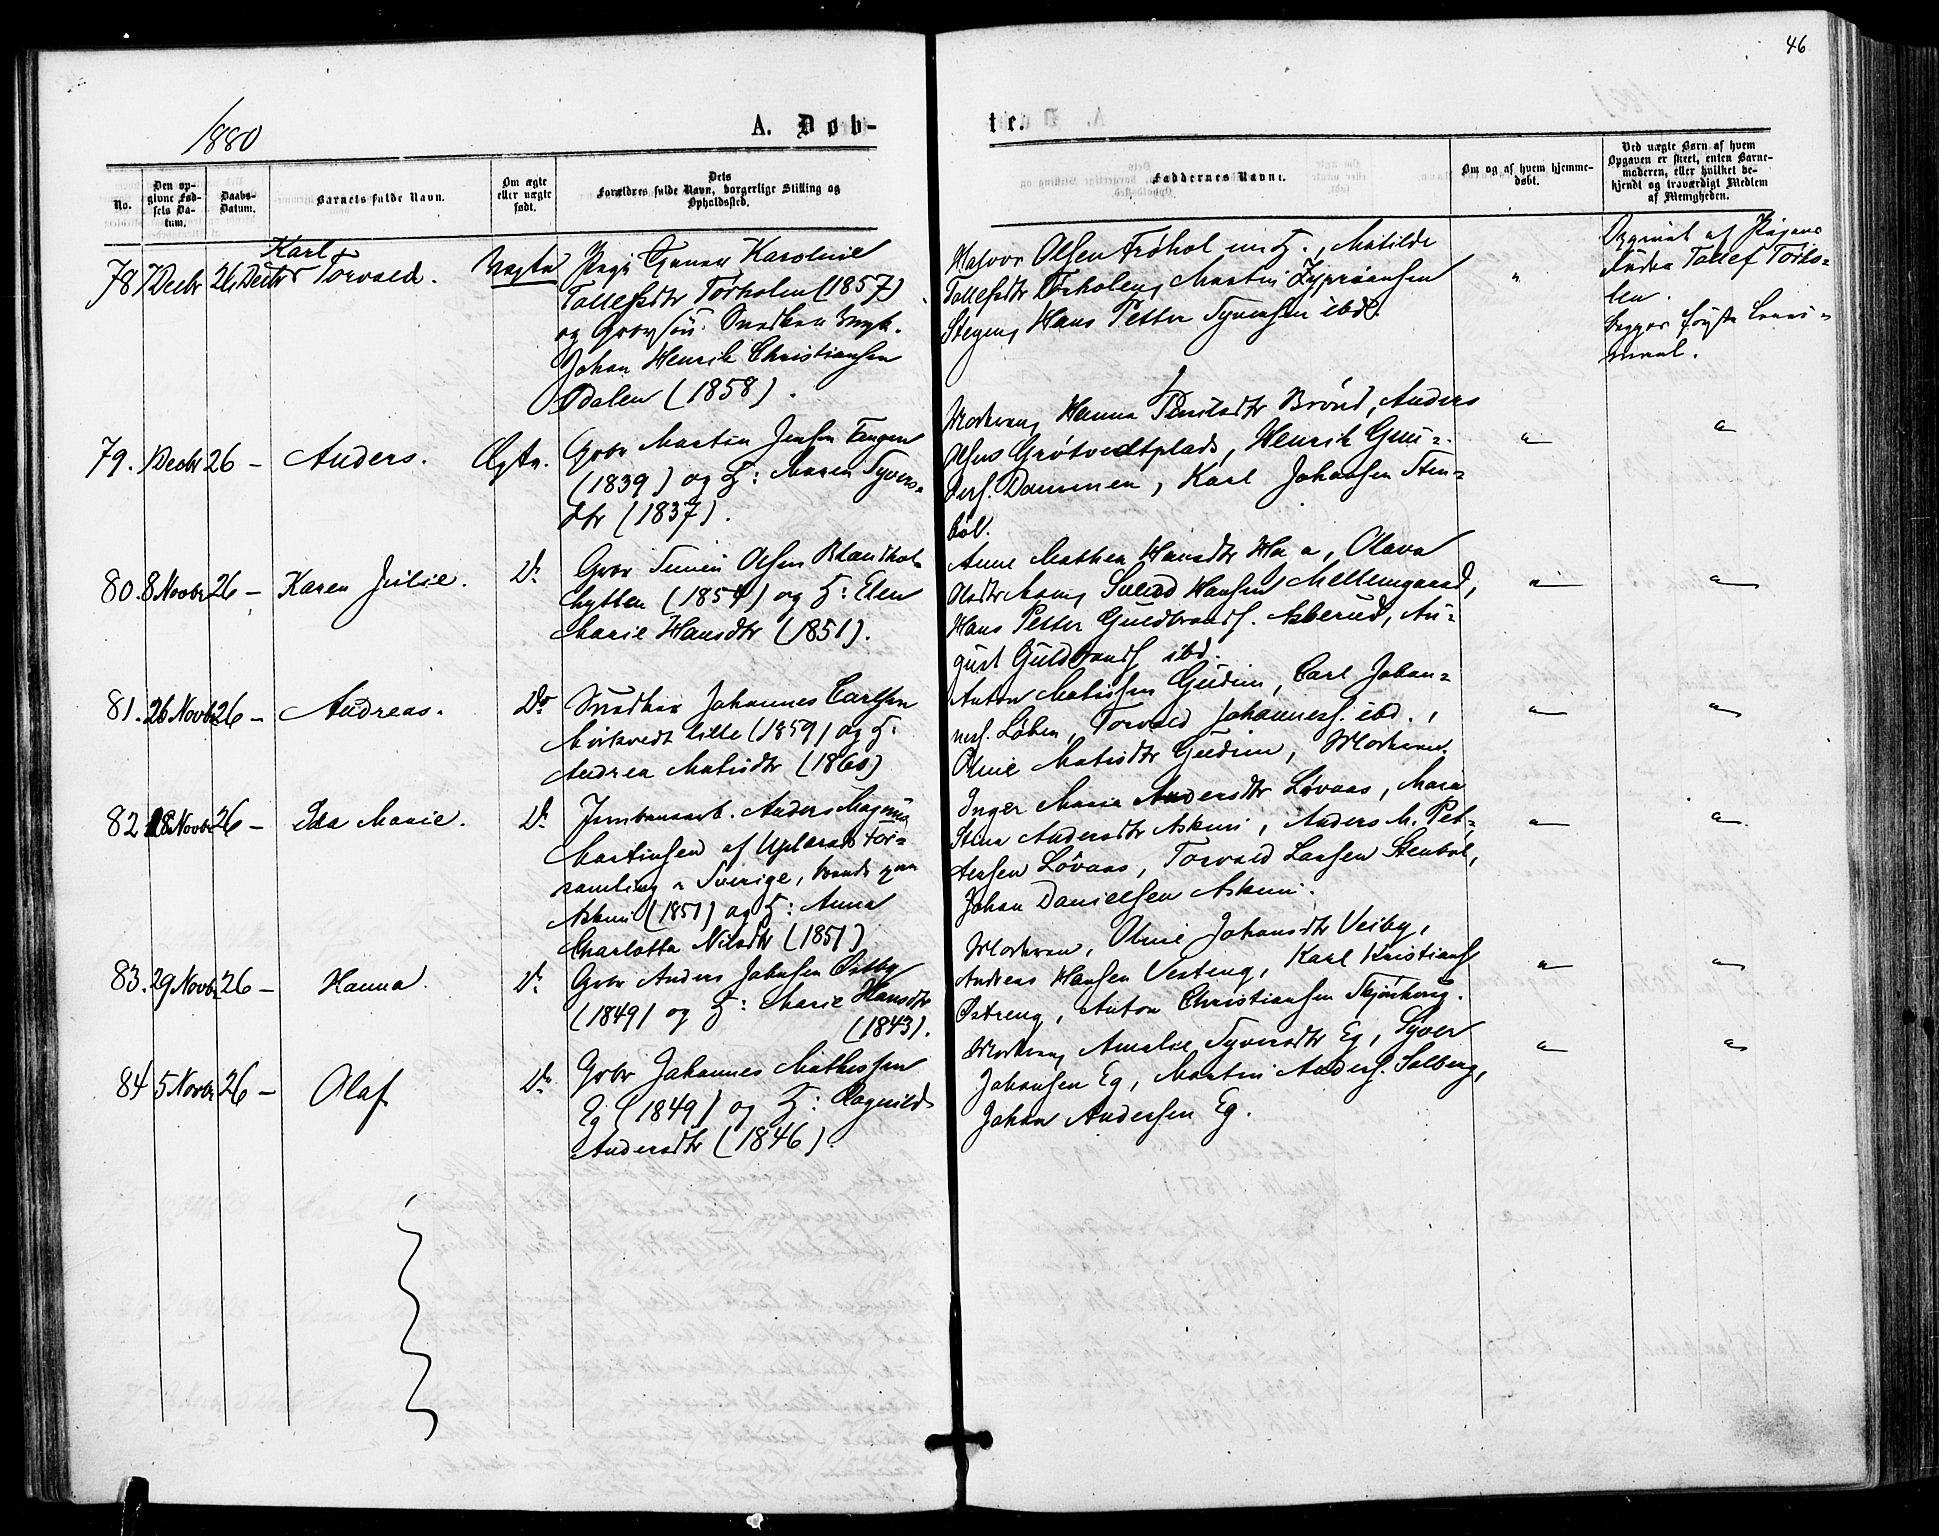 46
1880
A. Døb-
te.
No.
Den op-
givne Fød-
sels Da-
tum.
Daabs-
Datum.
Barnets fulde Navn.
Om ægte
eller uægte
født.
Dets
Forældres fulde Navn, borgerlige Stilling og
Opholdssted.
Faddernes Navne.
Om og af hvem hjemme-
døbt.
Ved uægte Børn af hvem
Opgaven er skeet, enten Barne-
moderen, eller hvilket be-
kjendt og troværdigt Medlem
af Menigheden.
78 7 Decbr 26 Decbr Karl
Torvald.
Uægte
Pige Karoline
Tollefsdtr Torholen (1857)
og
Johan Henrik Christiansen
Dalen (1858).
Halvor Olsen Frøhol, Matilde
Tollefsdtr Torholen, Martin Zypriansen
Stegen, Hans Petter Syversen ibd.
"
af Pigens
Fader Tollef Torho-
len.
Begges første Leier-
maal.
79. 1 Decbr 26 - Anders. Ægte.
Gbr Martin Jensen Tangen
(1839) og H: Maren Syvers-
dtr (1837).
Moderen, Hanna Brønd, Anders
Olsen Grøtvedtplads, Henrik Gun-
ders. Dammen, Karl Johansen Sten-
bøl.
" "
80. 8 Novbr 26 - Karen Julie. Do
Gbr Simen Olsen Blandkol-
hytten (1854) og H: Elen
Marie Hansdtr (1851).
Anne Mathea Hansdtr, Olava
Olsdtr, Svend Hansen Mellemgaard,
Hans Petter Guldbrands. Asberud, Au-
gust Guldbrands ibd.
" "
81. 26 Novbr 26 - Andreas. Do
Snedker Johannes Carlsen
Mirkvedt lille (1859) og H:
Andrea Matisdtr (1860)
Anton Matissen Gudim, Carl Johan-
nes. Løken, Torvald Johannes. ibd.,
Oline Matisdtr Gudim, Moderen.
" "
82 18 Novbr 26 - Ida Marie. Do
Jernbanearb. Anders Magnus
Martinsen af For-
samling i Sverige, boende paa
Askim (1851) og H: Anna
Charlotta Nilsdtr (1851)
Inger Maria Andersdtr Løvaas, Mara
Stina Andersdtr Askim, Anders M. Pet-
tersen Løvaas, Torvald Larsen Stenbøl,
Johan Danielsen Askim.
" "
83. 29 Novbr 26 - Hanna. Do
Gbr Anders Johnsen Østby
(1849) og H: Marie Hansdtr
(1843).
Moderen, Oline Johansdtr Veiby,
Andreas Hansen Vesteng, Karl Kristians
Østreng, Anton Christiansen Skjønberg.
" "
84 5 Novbr 26 - Olaf Do
Gbr Johannes Mathissen
Eg (1849) og H: Ragnild
Andersdtr (1846)
Moderen, Amalie Syversdtr Eg, Syver
Johansen Eg, Martin Anders. Solberg,
Johan Andersen Eg.
" "